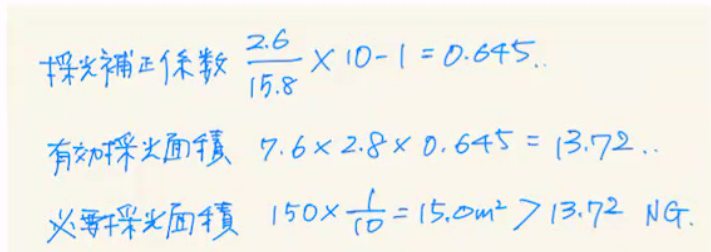 採光補正係数 2.6/15.8 × 10 - 1 = 0.645..
有効採光面積 7.6 × 2.8 × 0.645 = 13.72..
必要採光面積 150 × 1/10 = 15.0m² > 13.72 NG.